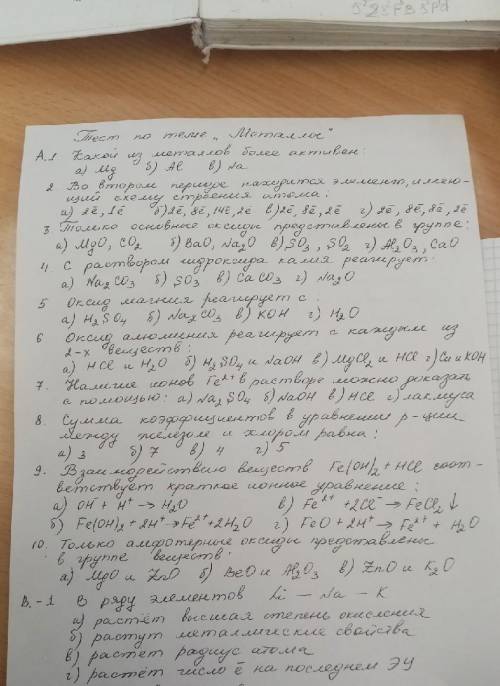 Тест по теме „Металлы"
А.1 Какой из металлов более активен:
а) Mg б) Al в) Na
2. Во втором периоде находится элемент, имею-
щий схему строения атома:
а) 2ē, 1ē б) 2ē, 8ē, 14ē, 2ē в) 2ē, 8ē, 2ē г) 2ē, 8ē, 8ē, 2ē
3. Только основные оксиды представлены в группе:
а) MgO, CO2 б) BaO, Na2O в) SO3, SO2 г) Al2O3, CaO
4 С раствором гидроксида калия реагирует:
а) Na2CO3 б) SO3 в) CaCO3 г) Na2O
5 Оксид магния реагирует с:
а) H2SO4 б) Na2CO3 в) KOH г) H2O
6 Оксид алюминия реагирует с каждым из
2-х веществ:
а) HCl и H2O б) H2SO4 и NaOH в) MgCl2 и HCl г) Cu и KOH
7. Наличие ионов Fe2+ в растворе можно доказать
с помощью: а) Na2SO4 б) NaOH в) HCl г) лакмуса
8. Сумма коэффициентов в уравнении р-ции
между железом и хлором равна:
а) 3 б) 7 в) 4 г) 5
9. Взаимодействию веществ Fe(OH)2 + HCl соот-
ветствует краткое ионное уравнение:
а) OH- + H+ → H2O в) Fe2+ + 2Cl- → FeCl2↓
б) Fe(OH)2 + 2H+ → Fe2+ + 2H2O г) FeO + 2H+ → Fe2+ + H2O
10. Только амфотерные оксиды представлены
в группе веществ:
а) MgO и ZnO б) BeO и Al2O3 в) ZnO и K2O
В.-1 В ряду элементов Li – Na – K
а) растёт высшая степень окисления
б) растут металлические свойства
в) растет радиус атома
г) растёт число ē на последнем ЭУ